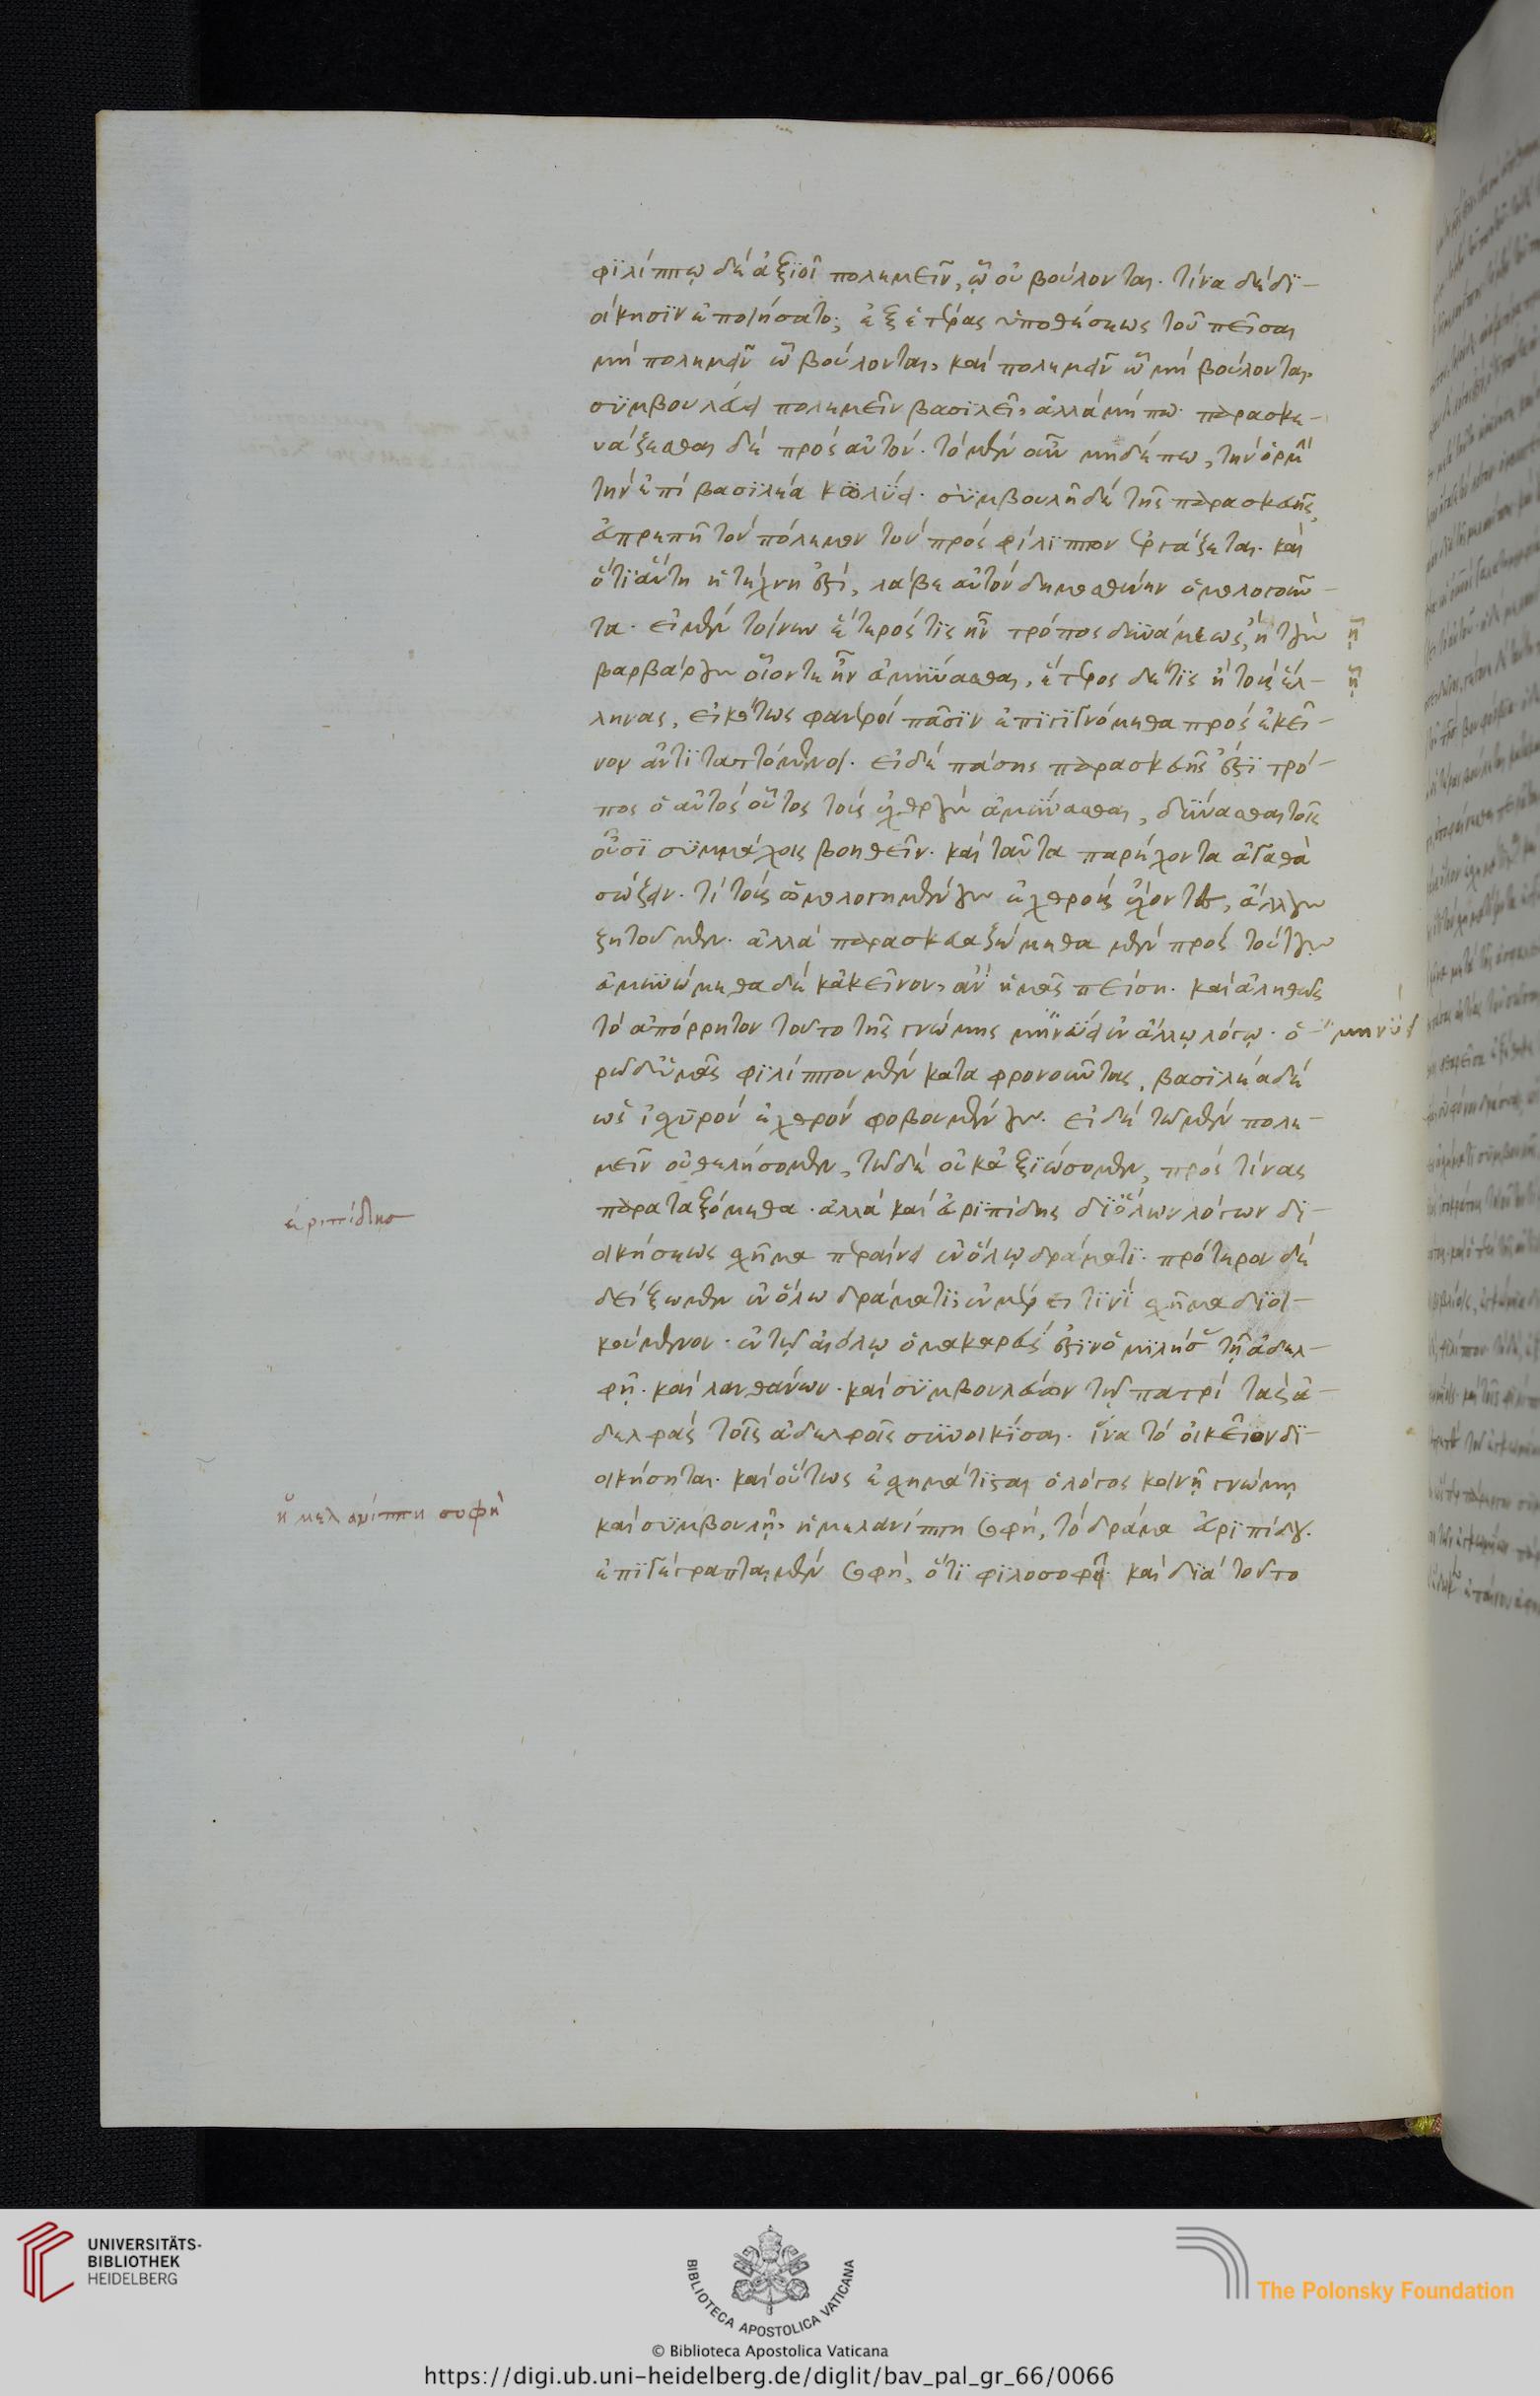 φϊλίππῳ δέ ἀξϊοῖ πολεμεῖν, ᾧ οὐ βούλονται. τίνα δέ δϊ-
οίκησϊν ἐποιήσατο; ἐξ ἑτέρας ὑποθέσεως τοῦ πεῖσαι
μή πολεμεῖν ὧ βούλονται, καί πολεμεῖν ὧ μή βούλονται,
συμβουλεύει πολεμεῖν βασϊλεῖ, ἀλλά μή πω παρασκε-
υάζεσθαι δέ πρός αὐτόν. τό μέν οὖν μηδέπω, τήν ὁρμήν
τήν ἐπί βασϊλέα κωλύει. συμβουλῆ δέ τῆς παρασκευῆς,
εὐπρεπῆ τόν πόλεμον τόν πρός φίλϊππον ἐργάζεται. καί
ὅτϊ αὕτη ἡ τέχνη ἐστί, λάβε αὐτόν δημοσθένην ὁμολογοῦν-
τα. εἰ μέν τοίνυν ἕτερός τις ἦν τρόπος δυνάμεως, ἢ τῶν
βαρβάρων οἷόν τε ἦν ἀμύνασθαι, ἕτερος δέ τϊς ἢ τούς ἕλ-
ληνας, εἰκότως φανεροί πᾶσϊν ἐπϊγϊγνόμεθα πρός ἐκεῖ-
νον ἀντϊταττόμενοι. εἰ δέ πάσης παρασκευῆς ἐστϊ τρό-
πος ὁ αὐτός οὗτος τούς ἐχθρούς ἀμύνασθαι, δύνασθαι τοῖς
οὖσϊ συμμάχοις βοηθεῖν. καί ταῦτα παρέχοντα ἀγαθά
σώζειν. τί τούς ὁμολογημένους ἐχθρούς ἔχοντες, ἄλλους
ζητοῦμεν. ἀλλά παρασκευαζώμεθα μέν πρός τούτους
ἀμυνώμεθα δέ κἀκεῖνον, ἄν ἡμᾶς πείση. καί ἀληθῶς
τό ἀπόρρητον τοῦτο τῆς γνώμης μηνύει ἐν ἄλλῳ λόγῳ. ὁ- μηνύει
ρῶ δ' ὑμᾶς φϊλίππου μέν καταφρονοῦντας, βασϊλέα δέ
ὡς ἰσχυρόν ἐχθρόν φοβουμένους. εἰ δέ τῶ μέν πολε-
μεῖν οὐ θελήσομεν, τῶ δέ οὐκ ἀξϊώσομεν, πρός τίνας
παραταξόμεθα. ἀλλά καί εὐρϊπίδης δϊ' ὅλων λόγων δϊ-
οικήσεως σχῆμα περαίνει ἐν ὅλῳ δράματϊ. πρότερον δέ
δείξωμεν ἐν ὅλω δράματϊ, ἐν μέρει τϊνί σχῆμα δϊοι-
κούμενον. ἐν τῷ αἰόλῳ ὁ μακαρεύς ἐστϊν ὁμϊλήσας τῇ ἀδελ-
φῇ. καί λανθάνων. καί συμβουλεύων τῷ πατρί τάς ἀ-
δελφάς τοῖς ἀδελφοῖς συνοικίσαι. ἵνα τό οἰκεῖον δϊ-
οικήσηται. καί οὕτως ἐσχημάτϊσται ὁ λόγος κοινῇ γνώμῃ
καί συμβουλῇ. ἡ μελανίππη σοφή, τό δράμα εὐρϊπίδου.
ἐπϊγέγραπται μέν σοφή, ὅτϊ φϊλοσοφεῖ. καί δϊά τοῦτο
ἐριπίδησ
ἡ μελανίππη σοφή
UNIVERSITÄTS-
BIBLIOTHEK
HEIDELBERG
BIBLIOTECA APOSTOLICA VATICANA
The Polonsky Foundation
© Biblioteca Apostolica Vaticana
https://digi.ub.uni-heidelberg.de/diglit/bav_pal_gr_66/0066